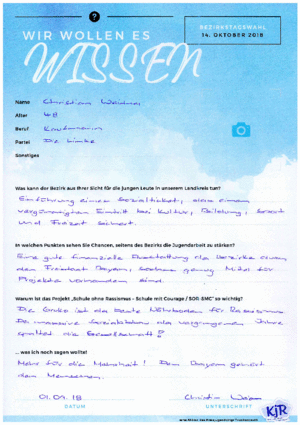 ?
WIR WOLLEN ES
WISSEN
BEZIRKSTAGSWAHL
14. OKTOBER 2018
Name Christian
Alter 48
Beruf Kaufmann
Partei Die Linke
Sonstiges
Was kann der Bezirk aus Ihrer Sicht für die jungen Leute in unserem Landkreis tun?
Einführung eines Sozialticket, das einen
vergünstigten Eintritt bei Kultur, Bildung, Sport
und Freizeit sichert.
In welchen Punkten sehen Sie Chancen, seitens des Bezirks die Jugendarbeit zu stärken?
Eine gute finanzielle Ausstattung der Bezirke durch
den Freistaat Bayern, sodass genug Mittel für
Projekte vorhanden sind.
Warum ist das Projekt „Schule ohne Rassismus - Schule mit Courage / SOR SMC" so wichtig?
Die Schule ist der beste Nährboden für Rassismus
Der massive Sozialabbau der vergangenen Jahre
spaltet die Gesellschaft!
... was ich noch sagen wollte!
Mehr für die Mehrheit! Denn Bayern gehört
den Menschen.
01.09.18 Christian
DATUM UNTERSCHRIFT
KJR